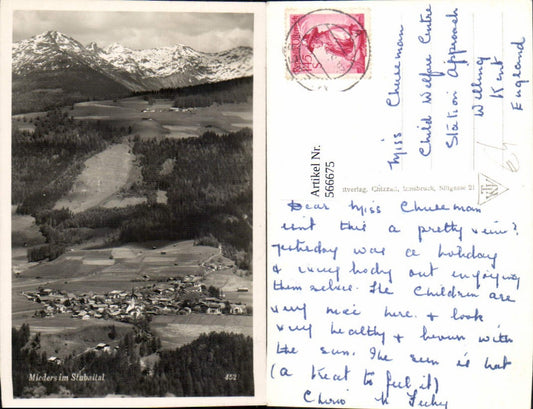 Mieders im Stubaital 452
Artikel Nr.
566675
Miss Chuseman
Child Welfare Centre
Station Approach
Welling
Kent
England
64
Innsbruck, Sillgasse 21
Dear Miss Chuseman
isnt this a pretty view?
yesterday was a holiday
& every body out enjoying
them selves. The Children are
very nice here. & look
very healthy & brown with
the sun. The sun is hot
(a treat to feel it)
Cheerio